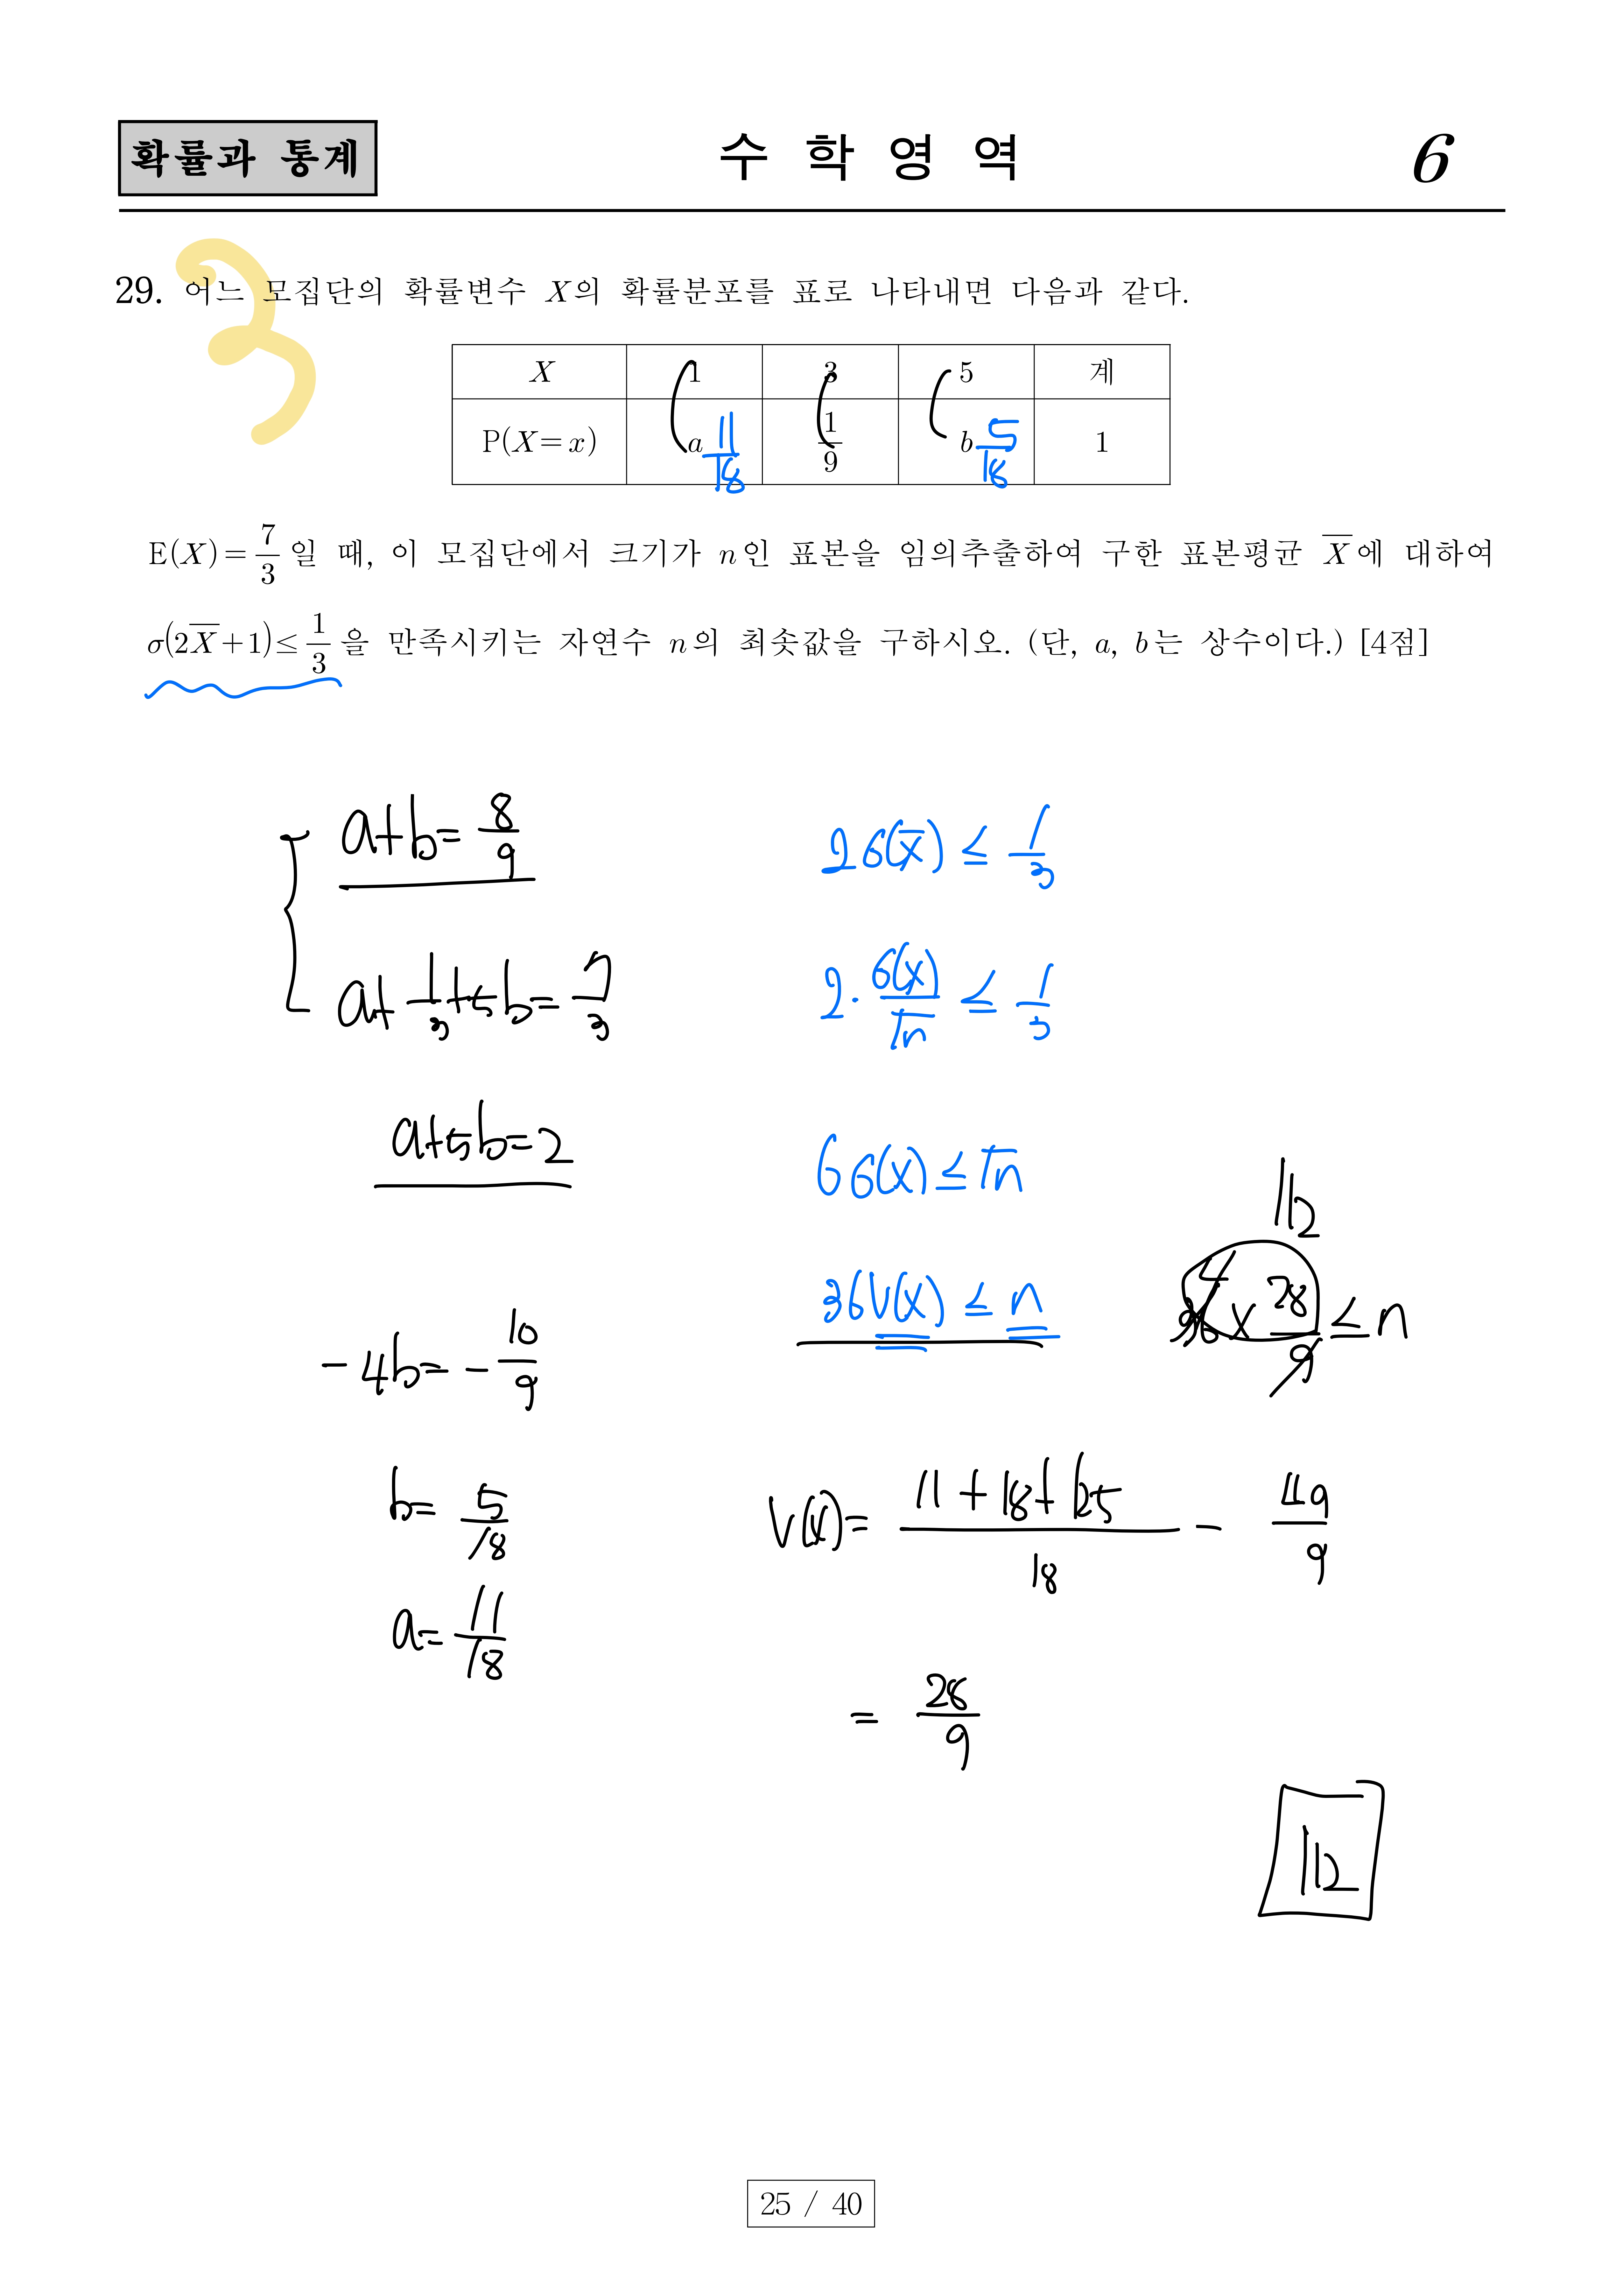 확률과 통계
수 학 영 역
6
3
29. 어느 모집단의 확률변수 X의 확률분포를 표로 나타내면 다음과 같다.
X 1 3 5 계
P(X=x) a 11/18 1/9 b 5/18 1
E(X)=7/3 일 때, 이 모집단에서 크기가 n인 표본을 임의추출하여 구한 표본평균 X̄에 대하여
σ(2X̄+1)≤1/3 을 만족시키는 자연수 n의 최솟값을 구하시오. (단, a, b는 상수이다.) [4점]
a+b=8/9
a+1/3+5b=7/3
a+5b=2
-4b=-10/9
b=5/18
a=11/18
2σ(X̄)≤1/3
2·σ(X)/√n≤1/3
6σ(X)≤√n
36V(X)≤n
112
4
36×28/9≤n
V(X)=(11+18+125)/18-49/9
=28/9
112
25 / 40